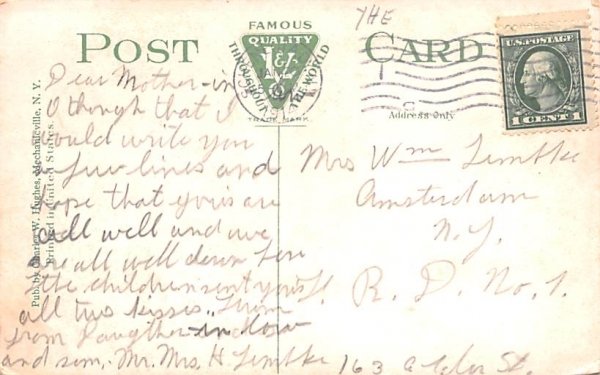 THE
POST CARD
FAMOUS
QUALITY
THROUGHOUT THE WORLD
TRADE MARK
U.S. POSTAGE
1 CENT 1
Address Only
Pub. by Charles W. Hughes, Mechanicville, N. Y.
Printed in United States.
Dear Mother-in
I though that I
would write you
a few lines and
hope that yours are
all well and we
are all well down here
the children sent yours
all two kisses. From
from Daugther in law
and son. Mr. Mrs. H Lembke
163 St.
Mrs Wm Lembke
Amsterdam
N. Y.
R. D. No. 1.